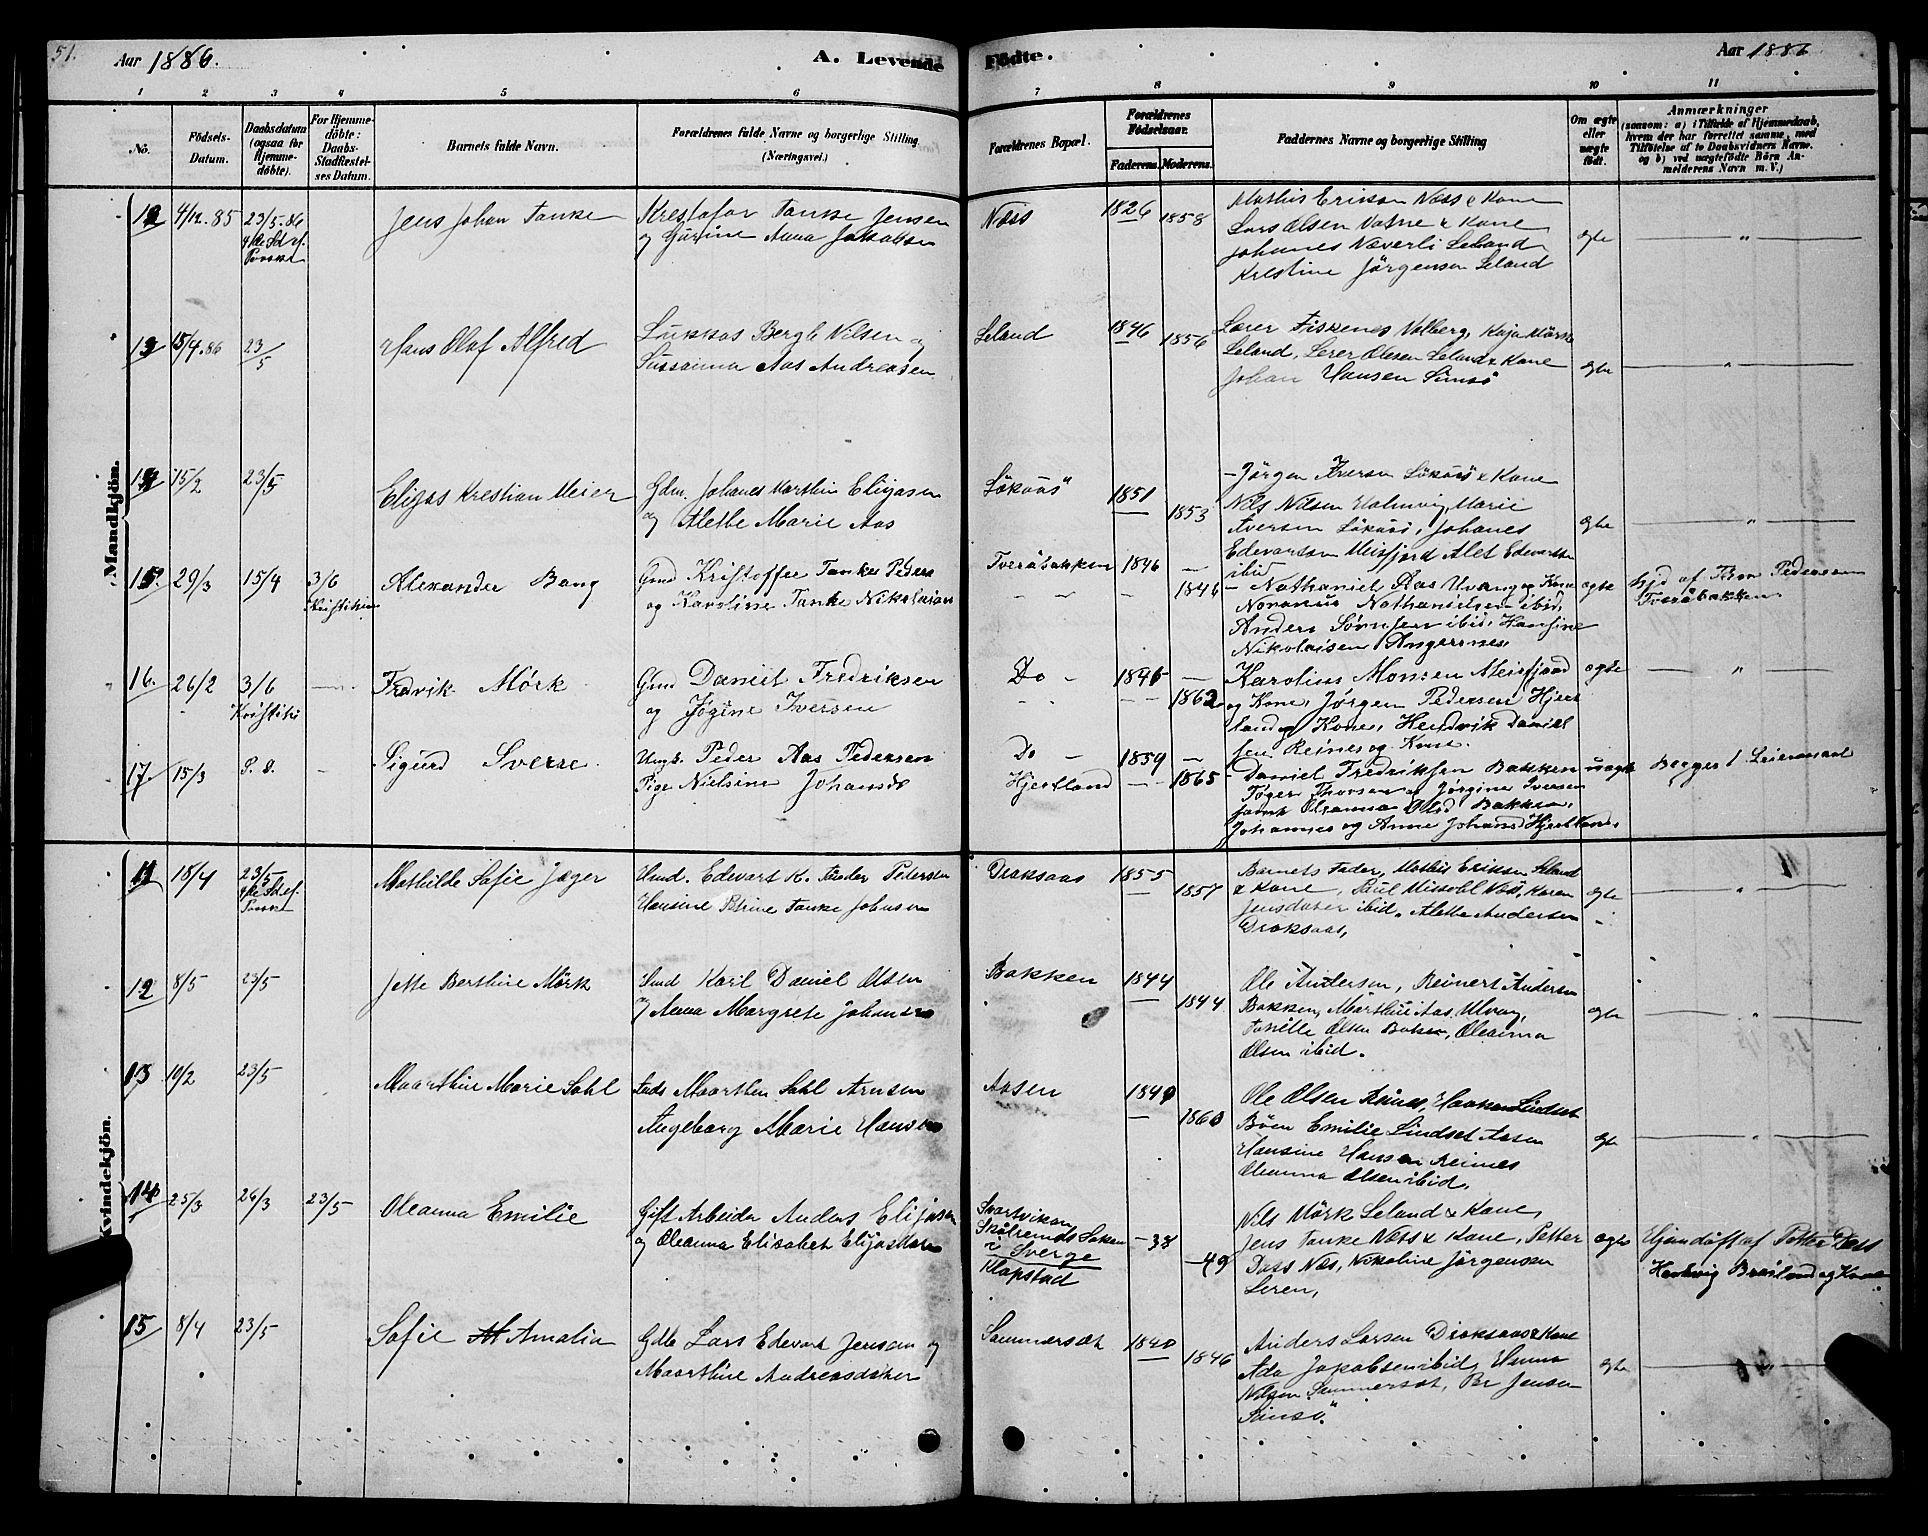 51.
Aar 1886.
A. Levende Fødte.
Aar 1886
1 2 3 4 5 6 7 8 9 10 11
No.
Födsels-
Datum.
Daabsdatum
(ogsaa for
Hjemme-
döbte).
For Hjemme-
döbte:
Daabs-
Stadfæstel-
ses Datum.
Barnets fulde Navn.
Forældrenes fulde Navne og borgerlige Stilling
(Næringsvei.)
Forældrenes Bopæl.
Forældrenes
Födselsaar.
Faderens. Moderens.
Faddernes Navne og borgerlige Stilling
Om ægte
eller
uægte
födt.
Anmærkninger
(saasom: a) i Tilfælde af Hjemmedaab,
hvem der har forrettet samme, med
Tilföielse af to Daabsvidners Navne.
og b) ved uægtefödte Börn An-
melderens Navn m. V.)
Mandkjön.
12 4/12.85 23/5.86
Jens Johan Tanke
Krestofor Tanke Jensen
og Gurine Anna Jakobsen
Næss
1826 1858
Mathis Erikson Næss & Kone
Lars Olsen Vatne & Kone
Johanes Næverli Leland
Krestine Jörgensen Leland
egte
"
13 15/4.86 23/5
Hans Olaf Alfred
Lukkas Bergh Nilsen og
Sussanna Aas Andreasen
Leland
1846 1856
Lærer Fiskenes Valberg, Kaja
Leland, Lerer Olesen Leland & Kone
Johan Hansen Simsö
egte
"
14 15/2 23/5
Elijas Krestian Meier
Gdm. Johanes Marthin Elijasen
og Alethe Marie Aas
Lökaas
1851 1853
Jörgen Iversen Lökaas & Kone
Nils Nilsen Holmvig, Marie
Iversen Lökaas, Johanes
Edevarsen Meisfjord Alet Edevartsen
ibid
egte
"
15. 29/3 15/4 3/6
Alexander Bang
Gmd Kristoffer Tanke Peders
og Karoline Tanke Nikolaisen
Tveråbakken
1846 1846
Nathaniel Aas Utvang og Kone
Nathanielsen ibid,
Anders Sörnsen ibid, Hansine
Nikolaisen Angersnes,
egte
hjd af Pedersen
Tveråbakken
16. 26/2 3/6
Fredrik Mörk
Gmd Daniel Fredriksen
og Jögine Iversen
Do
1846 1862
Karolius Monsen Meisfjord
og Kone, Jörgen Pedersen Hjert
land og Kone, Hendrik Daniel
sen Reines og Kone.
egte
"
17. 15/3 P. 8.
Sigurd Sverre
Ungk. Peder Aas Pedersen
Pige Nielsine Johansd
Do
Hjertland
1859 1865
Daniel Fredriksen Bakken
Töger Thorsen og Jörgine Iversen
Oleanna Olsd Bakken,
Johannes og Anne Johansd Hjertland.
uegte
Begges 1 Leiermaal
Kvindekjön.
11 18/4 23/5
Mathilde Sofie Jæger
Hmd. Edevart K. Peders
Hansine Petrine Tanke Johnsen
Draksaas
1855 1857
Barnets Fader, Mathis Eriksen Leland
& Kone, Næs, Karen
Jensdater ibid. Alette Andersen
Draksaas,
egte
"
12 8/5 23/5
Jette Berthine Mörk
Hmd Karl Daniel Olsen
og Anna Margrete Johansen
Bakken
1844 1844
Ole Andersen, Reinert Andersen
Bakken, Marthin Aas Ulvag,
Olsen Bakken, Oleanna
Olsen ibid.
egte
"
13 19/2 23/5
Maarthine Marie Sahl
Inds Maarthen Sahl Arnsen
Angeborg Marie Hansen
Aasen
1849 1860
Ole Olsen Reines, Haaken Lindset
Böen Emilie Lindset Aasen
Hansine Hansen Reines
Oleanna Olsen ibid.
egte
"
14 25/3 26/3 23/5
Oleanna Emilie
Gift Arbeider Anders Elijasen
og Oleanna Elisabet Elijasdater
Svartviken
i Sverge
Klapstad
-38 -49
Nils Mörk Leland & Kone,
Jens Tanke Næss & Kone, Petter
Dass Næs, Nikoline Jörgensen
Leren,
egte
Hjemdöft af Petter Dass
Hartvig Brasland og Kone
15 8/4 23/5
Sofie Amalia
Gdb Lars Edevart Jensen og
Maarthine Andreasdater
Sammersæt
1840 1846
Anders Larsen Draksaas & Kone
Ada Jakobsen ibid, Hanna
Nilsen Sammersæt, Per Jensen
Simsö
egte
"